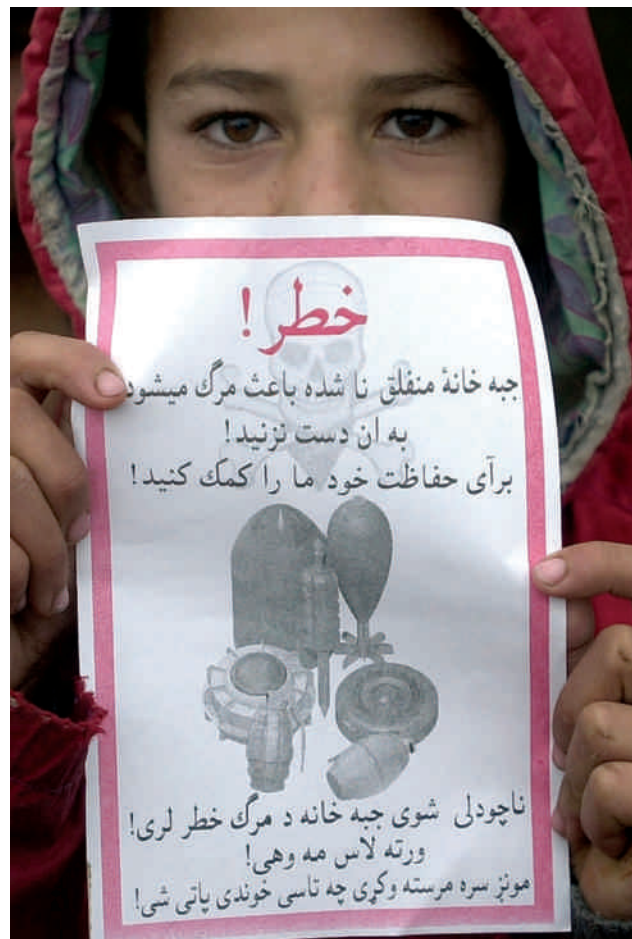 خطر !
جبه خانهٔ منفلق نا شده باعث مرگ میشود
به ان دست نزنید!
برآی حفاظت خود ما را کمک کنید!
ناچودلی شوی جبه خانه د مرگ خطر لری!
ورته لاس مه وهی!
مونږ سره مرسته وکړی چه تاسی خوندی پاتی شی!